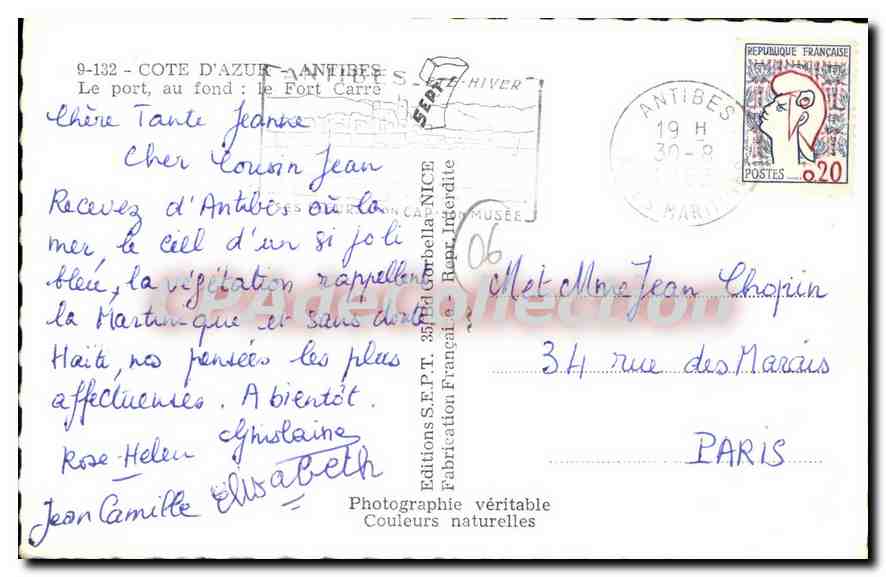 9-132 - COTE D'AZUR - ANTIBES
Le port, au fond : le Fort Carré
Chère Tante Jeanne
Cher Cousin Jean
Recevez d'Antibes où la
mer, le ciel d'un si joli
bleu, la végétation rappellent
la Martinique et sans doute
Haïti, nos pensées les plus
affectueuses. A bientôt.
Rose-Helen Ghislaine
Jean Camille Elisabeth
ANTIBES
SEPT
ETE-HIVER
SON CAP SON MUSÉE
Editions S.E.P.T. 35, Bd Gorbella-NICE
Fabrication Française - Repr. Interdite
06
ANTIBES
19 H
30-8
MARITIMES
REPUBLIQUE FRANÇAISE
POSTES 0,20
M et Mme Jean Chopin
34 rue des Marais
PARIS
Photographie véritable
Couleurs naturelles
CPAdeCollection